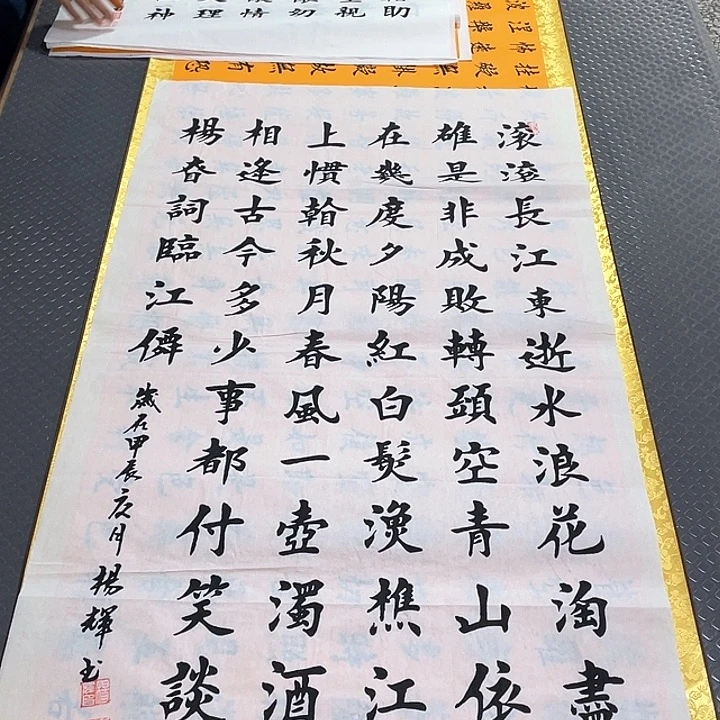 滾滾長江東逝水浪花淘盡
雄是非成敗轉頭空青山依
在幾度夕陽紅白髮漁樵江
上慣看秋月春風一壺濁酒
相逢古今多少事都付笑談
楊昚詞臨江僊
甲辰月楊輝书